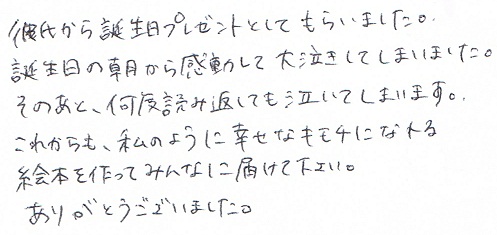 彼氏から誕生日プレゼントとしてもらいました。
誕生日の朝から感動して大泣きしてしまいました。
そのあと、何度読み返しても泣いてしまいます。
これからも、私のように幸せなキモチになれる
絵本を作ってみんなに届けて下さい。
ありがとうございました。